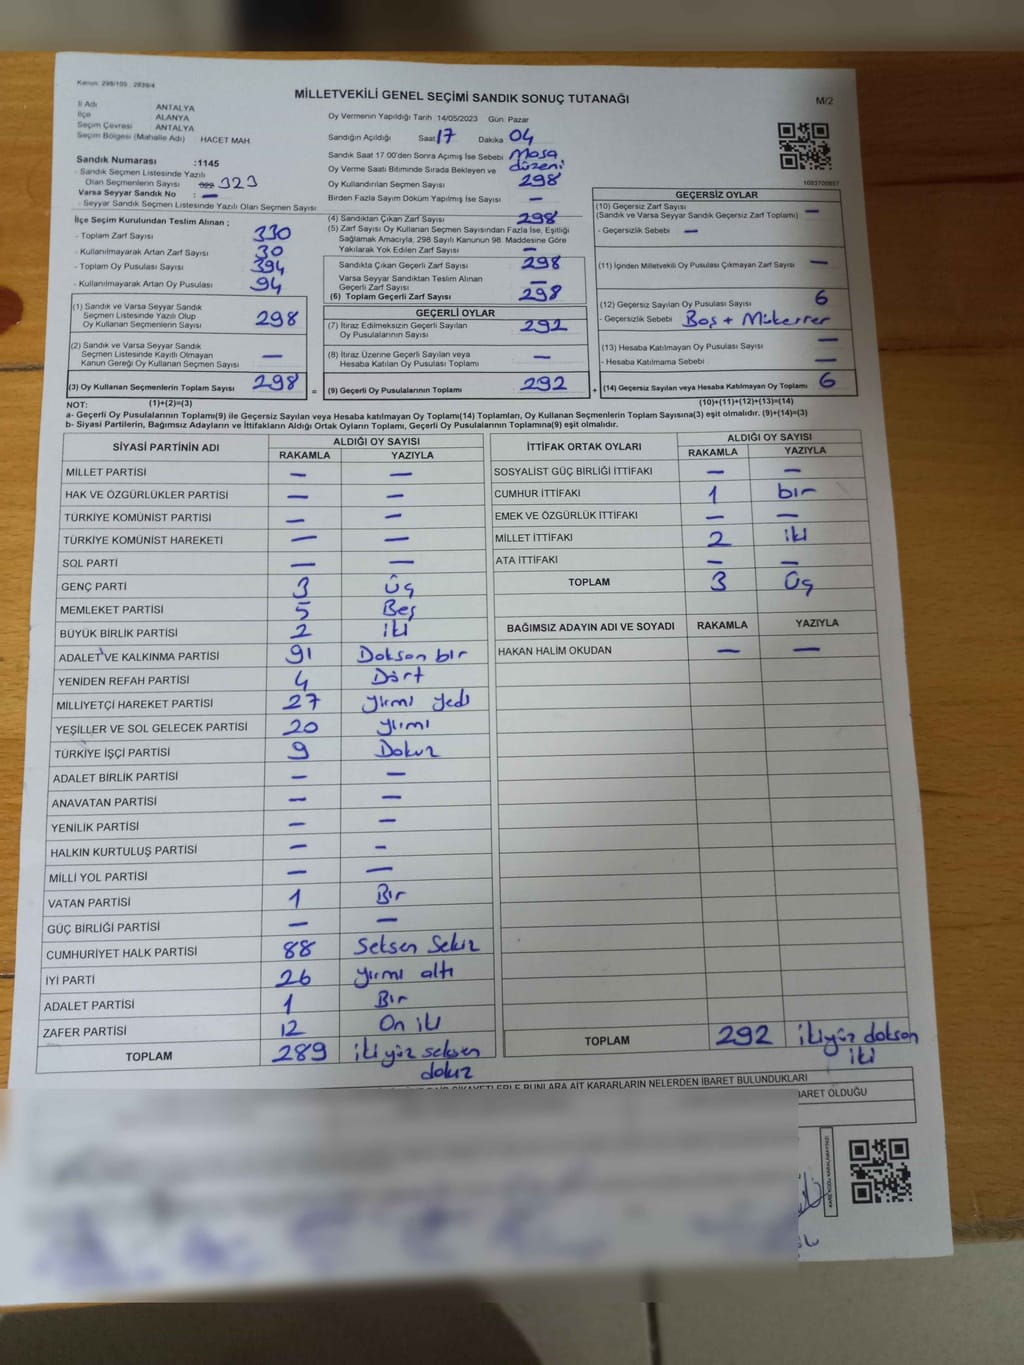 Kanun: 298/105 - 2839/4
MİLLETVEKİLİ GENEL SEÇİMİ SANDIK SONUÇ TUTANAĞI
M/2
İl Adı ANTALYA
İlçe ALANYA
Seçim Çevresi ANTALYA
Seçim Bölgesi (Mahalle Adı) HACET MAH
Sandık Numarası :1145
- Sandık Seçmen Listesinde Yazılı
Olan Seçmenlerin Sayısı 323
Varsa Seyyar Sandık No : —
- Seyyar Sandık Seçmen Listesinde Yazılı Olan Seçmen Sayısı
Oy Vermenin Yapıldığı Tarih 14/05/2023 Gün Pazar
Sandığın Açıldığı Saat 17 Dakika 04
Sandık Saat 17.00'den Sonra Açımış İse Sebebi Masa düzeni
Oy Verme Saati Bitiminde Sırada Bekleyen ve
Oy Kullandırılan Seçmen Sayısı 298
Birden Fazla Sayım Döküm Yapılmış İse Sayısı —
İlçe Seçim Kurulundan Teslim Alınan ;
- Toplam Zarf Sayısı 330
- Kullanılmayarak Artan Zarf Sayısı 30
- Toplam Oy Pusulası Sayısı 394
- Kullanılmayarak Artan Oy Pusulası 94
(1) Sandık ve Varsa Seyyar Sandık
Seçmen Listesinde Yazılı Olup
Oy Kullanan Seçmenlerin Sayısı 298
(2) Sandık ve Varsa Seyyar Sandık
Seçmen Listesinde Kayıtlı Olmayan
Kanun Gereği Oy Kullanan Seçmen Sayısı —
(3) Oy Kullanan Seçmenlerin Toplam Sayısı 298 =
(1)+(2)=(3)
(4) Sandıktan Çıkan Zarf Sayısı 298
(5) Zarf Sayısı Oy Kullanan Seçmen Sayısından Fazla İse, Eşitliği
Sağlamak Amacıyla; 298 Sayılı Kanunun 98. Maddesine Göre
Yakılarak Yok Edilen Zarf Sayısı —
Sandıkta Çıkan Geçerli Zarf Sayısı 298
Varsa Seyyar Sandıktan Teslim Alınan
Geçerli Zarf Sayısı —
(6) Toplam Geçerli Zarf Sayısı 298
GEÇERLİ OYLAR
(7) İtiraz Edilmeksizin Geçerli Sayılan
Oy Pusulalarının Sayısı 292
(8) İtiraz Üzerine Geçerli Sayılan veya
Hesaba Katılan Oy Pusulası Toplamı —
(9) Geçerli Oy Pusulalarının Toplamı 292 +
1083700857
GEÇERSİZ OYLAR
(10) Geçersiz Zarf Sayısı
(Sandık ve Varsa Seyyar Sandık Geçersiz Zarf Toplamı) —
- Geçersizlik Sebebi —
(11) İçinden Milletvekili Oy Pusulası Çıkmayan Zarf Sayısı —
(12) Geçersiz Sayılan Oy Pusulası Sayısı 6
- Geçersizlik Sebebi Boş + Mükerrer
(13) Hesaba Katılmayan Oy Pusulası Sayısı —
- Hesaba Katılmama Sebebi —
(14) Geçersiz Sayılan veya Hesaba Katılmayan Oy Toplamı 6
(10)+(11)+(12)+(13)=(14)
NOT:
a- Geçerli Oy Pusulalarının Toplamı(9) ile Geçersiz Sayılan veya Hesaba katılmayan Oy Toplamı(14) Toplamları, Oy Kullanan Seçmenlerin Toplam Sayısına(3) eşit olmalıdır. (9)+(14)=(3)
b- Siyasi Partilerin, Bağımsız Adayların ve İttifakların Aldığı Ortak Oyların Toplamı, Geçerli Oy Pusulalarının Toplamına(9) eşit olmalıdır.
SİYASİ PARTİNİN ADI ALDIĞI OY SAYISI
RAKAMLA YAZIYLA
MİLLET PARTİSİ — —
HAK VE ÖZGÜRLÜKLER PARTİSİ — —
TÜRKİYE KOMÜNİST PARTİSİ — —
TÜRKİYE KOMÜNİST HAREKETİ — —
SOL PARTİ — —
GENÇ PARTİ 3 Üç
MEMLEKET PARTİSİ 5 Beş
BÜYÜK BİRLİK PARTİSİ 2 iki
ADALET VE KALKINMA PARTİSİ 91 Doksan bir
YENİDEN REFAH PARTİSİ 4 Dört
MİLLİYETÇİ HAREKET PARTİSİ 27 yirmi yedi
YEŞİLLER VE SOL GELECEK PARTİSİ 20 yirmi
TÜRKİYE İŞÇİ PARTİSİ 9 Dokuz
ADALET BİRLİK PARTİSİ — —
ANAVATAN PARTİSİ — —
YENİLİK PARTİSİ — —
HALKIN KURTULUŞ PARTİSİ — —
MİLLİ YOL PARTİSİ — —
VATAN PARTİSİ 1 Bir
GÜÇ BİRLİĞİ PARTİSİ — —
CUMHURİYET HALK PARTİSİ 88 Seksen Sekiz
İYİ PARTİ 26 yirmi altı
ADALET PARTİSİ 1 Bir
ZAFER PARTİSİ 12 On iki
TOPLAM 289 iki yüz seksen
dokuz
İTTİFAK ORTAK OYLARI ALDIĞI OY SAYISI
RAKAMLA YAZIYLA
SOSYALİST GÜÇ BİRLİĞİ İTTİFAKI — —
CUMHUR İTTİFAKI 1 bir
EMEK VE ÖZGÜRLÜK İTTİFAKI — —
MİLLET İTTİFAKI 2 iki
ATA İTTİFAKI — —
TOPLAM 3 Üç
BAĞIMSIZ ADAYIN ADI VE SOYADI RAKAMLA YAZIYLA
HAKAN HALİM OKUDAN — —
TOPLAM 292 ikiyüz doksan
iki
BUNLARA AİT KARARLARIN NELERDEN İBARET BULUNDUKLARI
OLDUĞU